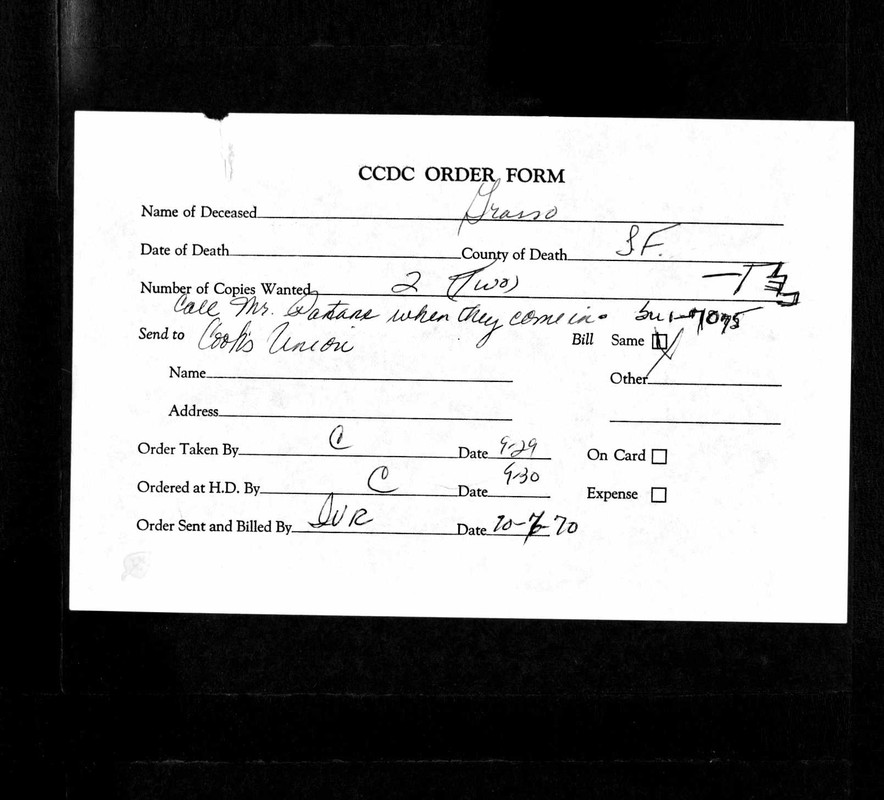 CCDC ORDER FORM
Name of Deceased Grasso
Date of Death County of Death S.F.
Number of Copies Wanted 2 (Two)
Call Mr. when they come in.
Send to Cooks Union Bill Same
Name Other
Address
Order Taken By C Date 9-29 On Card
Ordered at H.D. By C Date 9-30 Expense
Order Sent and Billed By Date 10-7-70